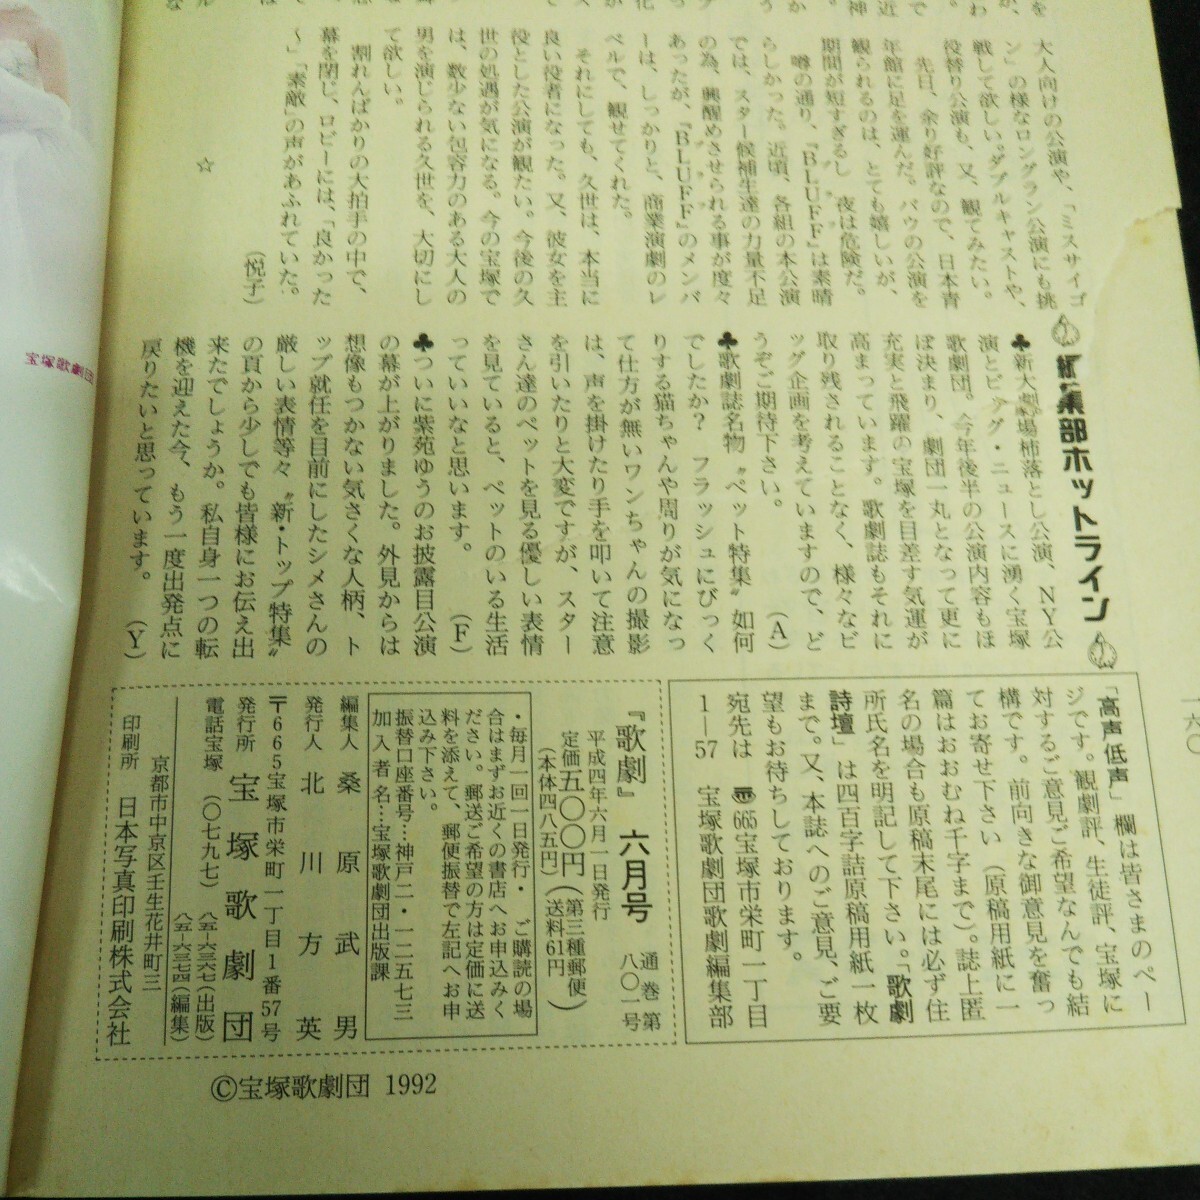 大人向けの公演や、「ミスサイゴ
ン」の様なロングラン公演にも挑
戦して欲しい。ダブルキャストや、
役替り公演も、又、観てみたい。
先日、余り好評なので、日本青
年館に足を運んだ。バウの公演を
観られるのは、とても嬉しいが、
期間が短すぎるし 夜は危険だ。
噂の通り、『BLUFF』は素晴
らしかった。近頃、各組の本公演
では、スター候補生達の力量不足
の為、興醒めさせられる事が度々
あったが、『BLUFF』のメンバ
ーは、しっかりと、商業演劇のレ
ベルで、観せてくれた。
それにしても、久世は、本当に
良い役者になった。又、彼女を主
役とした公演が観たい。今後の久
世の処遇が気になる。今の宝塚で
は、数少ない包容力のある大人の
男を演じられる久世を、大切にし
て欲しい。
割れんばかりの大拍手の中で、
幕を閉じ、ロビーには、「良かった
〜」「素敵」の声があふれていた。
(悦子)
☆
宝塚歌劇団
編集部ホットライン
♣新大劇場杮落とし公演、NY公
演とビッグ・ニュースに湧く宝塚
歌劇団。今年後半の公演内容もほ
ぼ決まり、劇団一丸となって更に
充実と飛躍の宝塚を目差す気運が
高まっています。歌劇誌もそれに
取り残されることなく、様々なビ
ッグ企画を考えていますので、ど
うぞご期待下さい。 (A)
♣歌劇誌名物〝ペット特集〟如何
でしたか? フラッシュにびっく
りする猫ちゃんや周りが気になっ
て仕方が無いワンちゃんの撮影
は、声を掛けたり手を叩いて注意
を引いたりと大変ですが、スター
さん達のペットを見る優しい表情
を見ていると、ペットのいる生活
っていいなと思います。 (F)
♣ついに紫苑ゆうのお披露目公演
の幕が上がりました。外見からは
想像もつかない気さくな人柄、ト
ップ就任を目前にしたシメさんの
厳しい表情等々〝新・トップ特集〟
の頁から少しでも皆様にお伝え出
来たでしょうか。私自身一つの転
機を迎えた今、もう一度出発点に
戻りたいと思っています。 (Y)
一六〇
「高声低声」欄は皆さまのペー
ジです。観劇評、生徒評、宝塚に
対するご意見ご希望なんでも結
構です。前向きな御意見を奮っ
てお寄せ下さい(原稿用紙に一
篇はおおむね千字まで)。誌上匿
名の場合も原稿末尾には必ず住
所氏名を明記して下さい。「歌劇
詩壇」は四百字詰原稿用紙一枚
まで。又、本誌へのご意見、ご要
望もお待ちしております。
宛先は 〒665宝塚市栄町一丁目
1―57 宝塚歌劇団歌劇編集部
『歌劇』 六月号 通巻第八〇一号
平成四年六月一日発行
定価五〇〇円(第三種郵便)
(本体四八五円)(送料61円)
・毎月一回一日発行・ ご購読の場
合はまずお近くの書店へお申込みく
ださい。郵送ご希望の方は定価に送
料を添えて、郵便振替で左記へお申
込み下さい。
振替口座番号…神戸二・一二五七三
加入者名…宝塚歌劇団出版課
編集人 桑原武男
発行人 北川方英
〒665宝塚市栄町一丁目1番57号
発行所 宝塚歌劇団
電話宝塚 (〇七九七) 八五―六三六七(出版)
八五―六三七四(編集)
京都市中京区壬生花井町三
印刷所 日本写真印刷株式会社
©宝塚歌劇団 1992